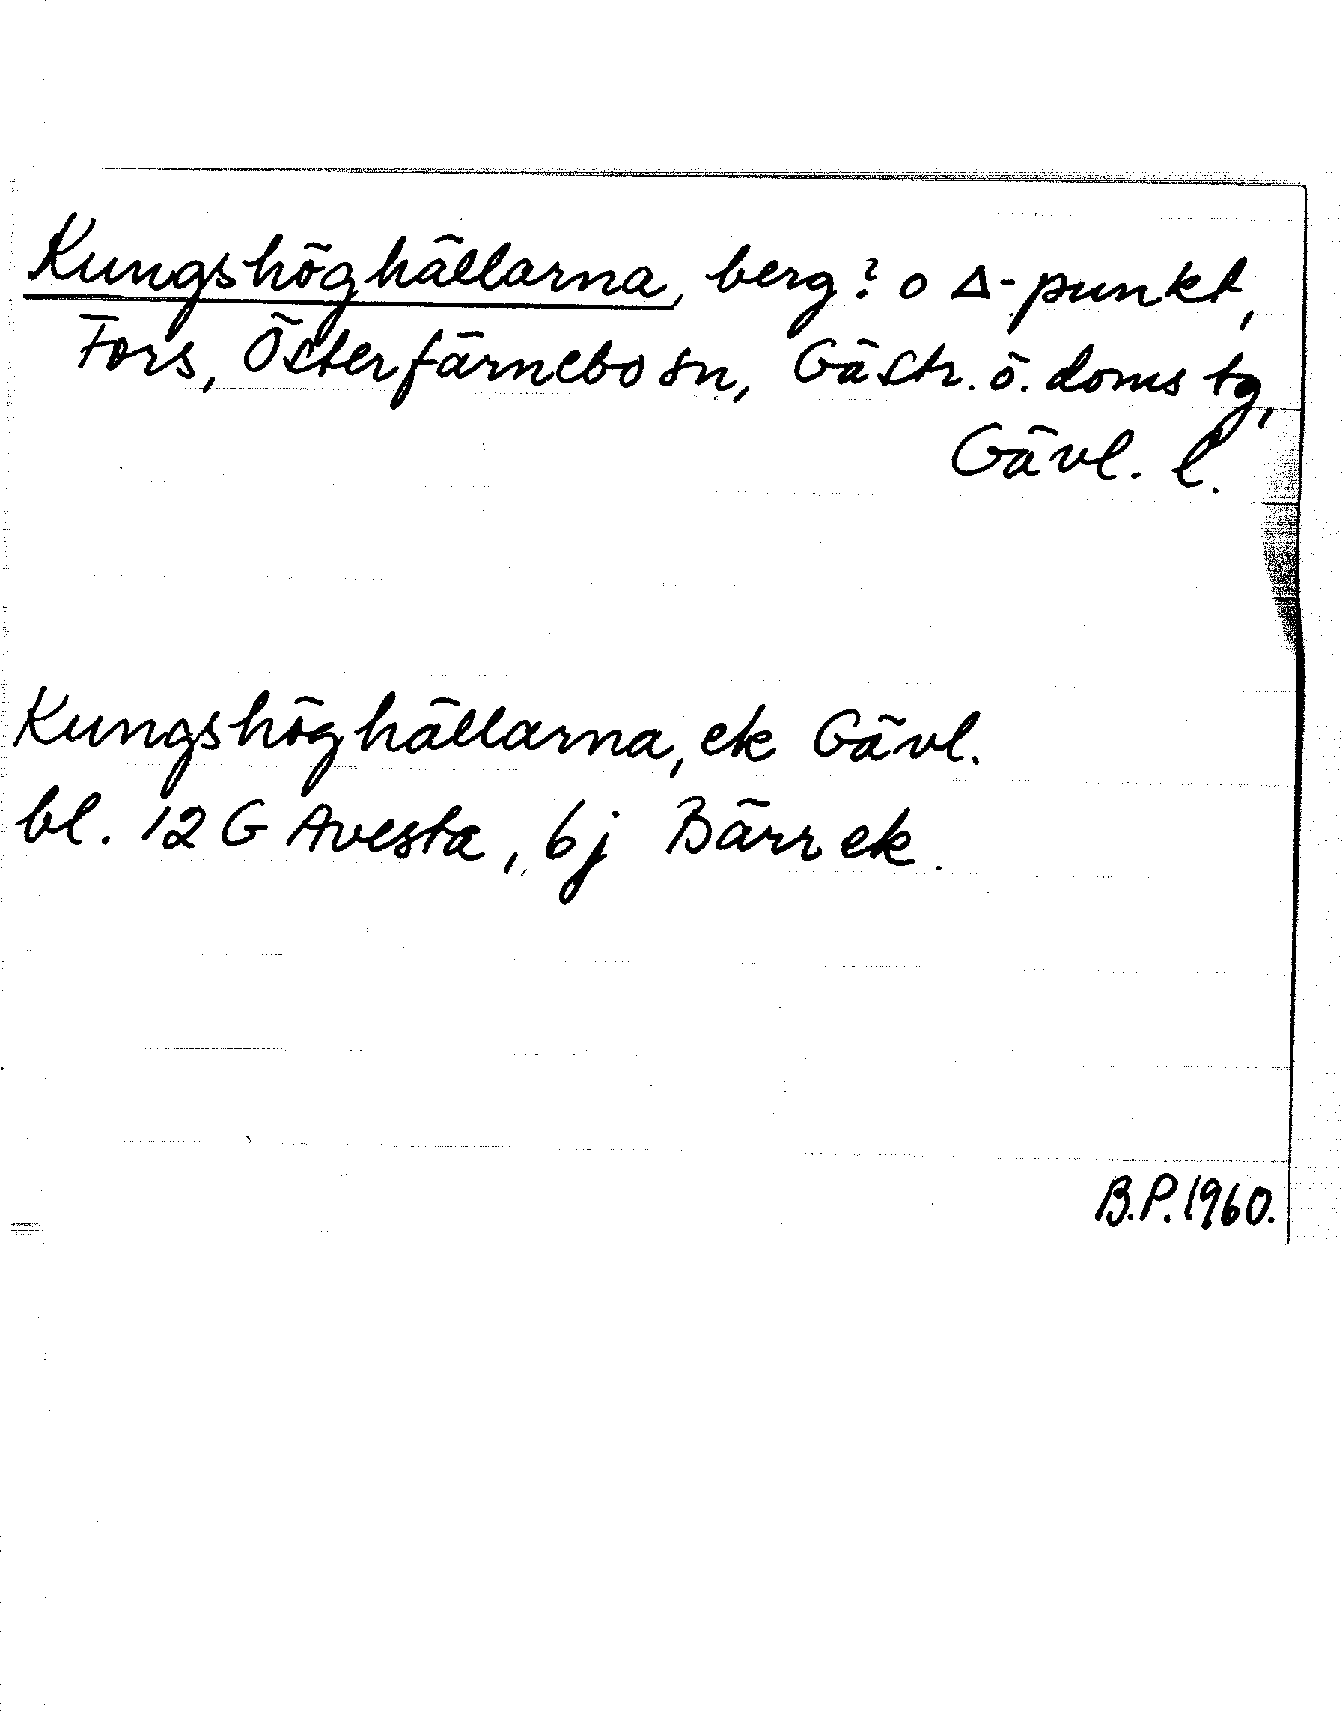 Kungshöghällarna, berg? o Δ-punkt,
Fors, Österfärnebo sn, Gästr. ö. doms tg,
Gävl. l.
Kungshöghällarna, ek Gävl.
bl. 12 G Avesta, 6j Bärrek.
B.P. 1960.